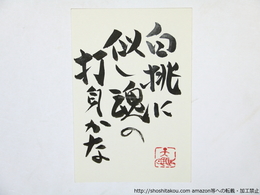 白桃に
似し魂の
打身かな
http://shoshitakou.com amazon等への転載・加工禁止